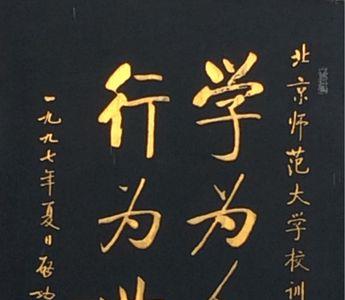 北京师范大学校训
学为
行为
一九九七年夏日启功